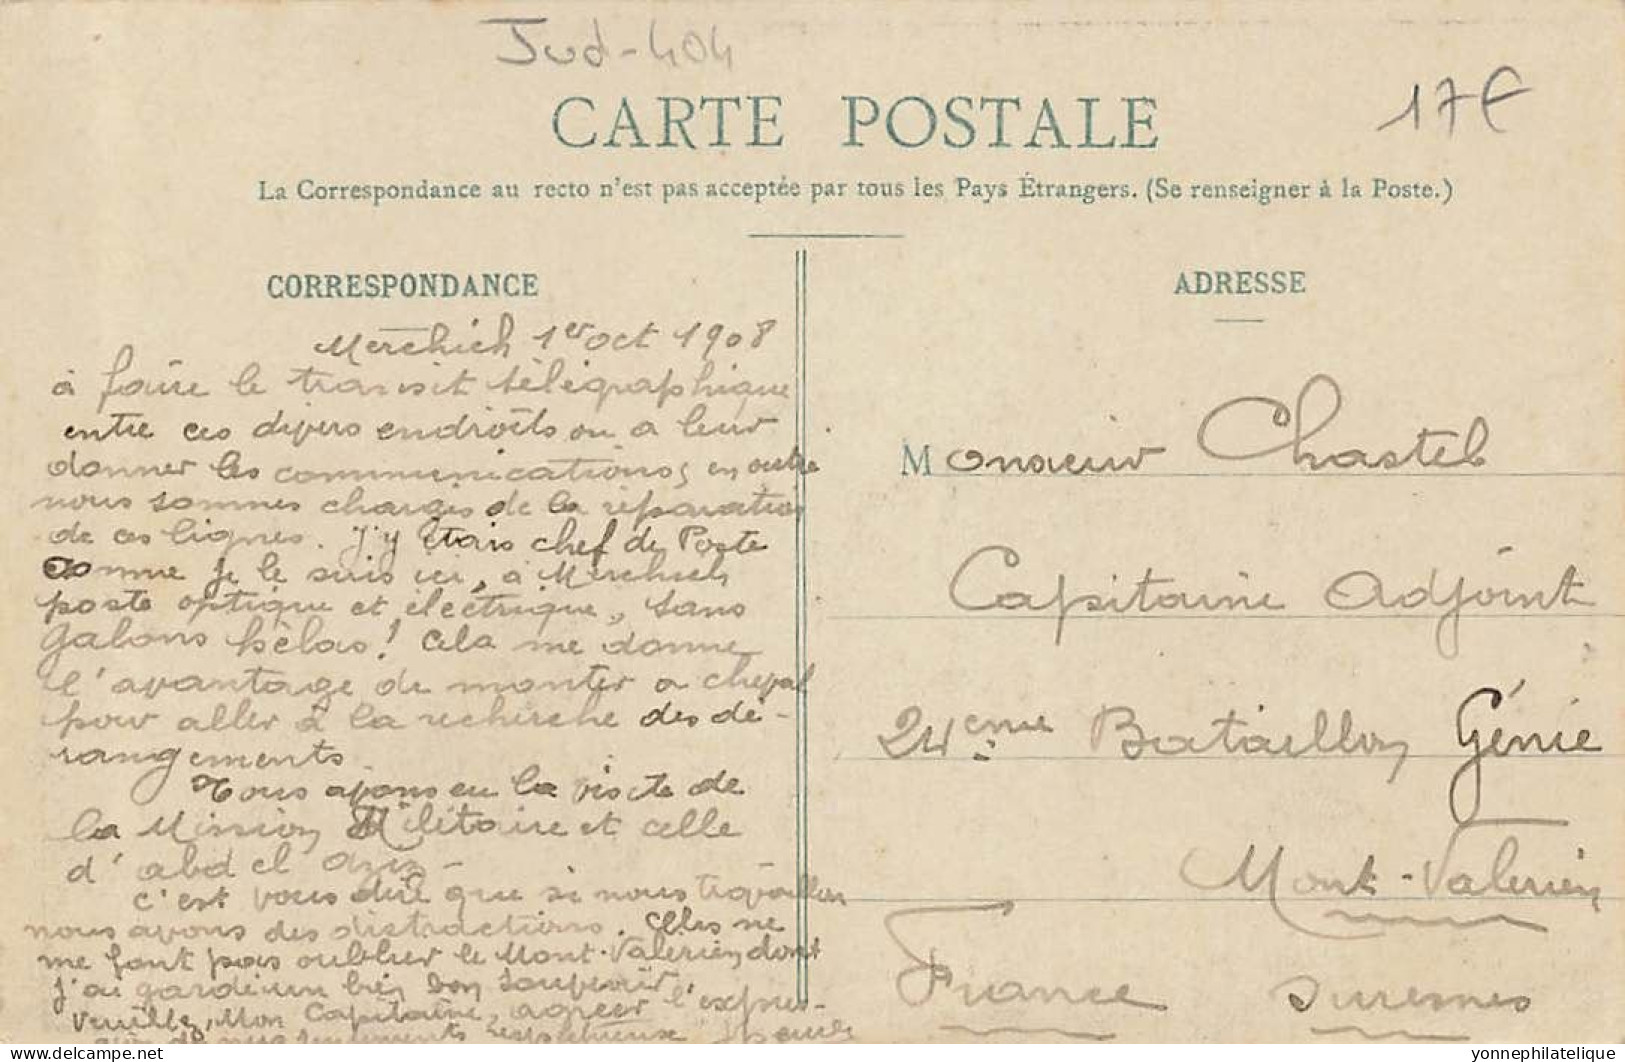 Jud-404
17€
CARTE POSTALE
La Correspondance au recto n'est pas acceptée par tous les Pays Étrangers. (Se renseigner à la Poste.)
CORRESPONDANCE
Merchich 1er oct 1908
à faire le transit télégraphique
entre ces divers endroits ou a leur
donner les communications, en outre
nous sommes chargés de la réparation
de ces lignes. J'y étais chef de Poste
comme je le suis ici, à Merchich
poste optique et électrique, sans
galons hélas! Cela me donne
l'avantage de monter a cheval
pour aller à la recherche des dé-
rangements.
Nous avons eu la visite de
la Mission Militaire et celle
d'abd el aziz -
C'est vous dire que si nous travaillons
nous avons des distractions. Elles ne
me font pas oublier le Mont-Valerien dont
j'ai gardé un bien bon souvenir.
Veuillez, Mon Capitaine, agréer l'expres-
sion de mes sentiments respectueux
ADRESSE
Monsieur Chastel
Capitaine Adjoint
24eme Bataillon Génie
Mont-Valerien
France Suresnes
www.yonnephilatelique.com